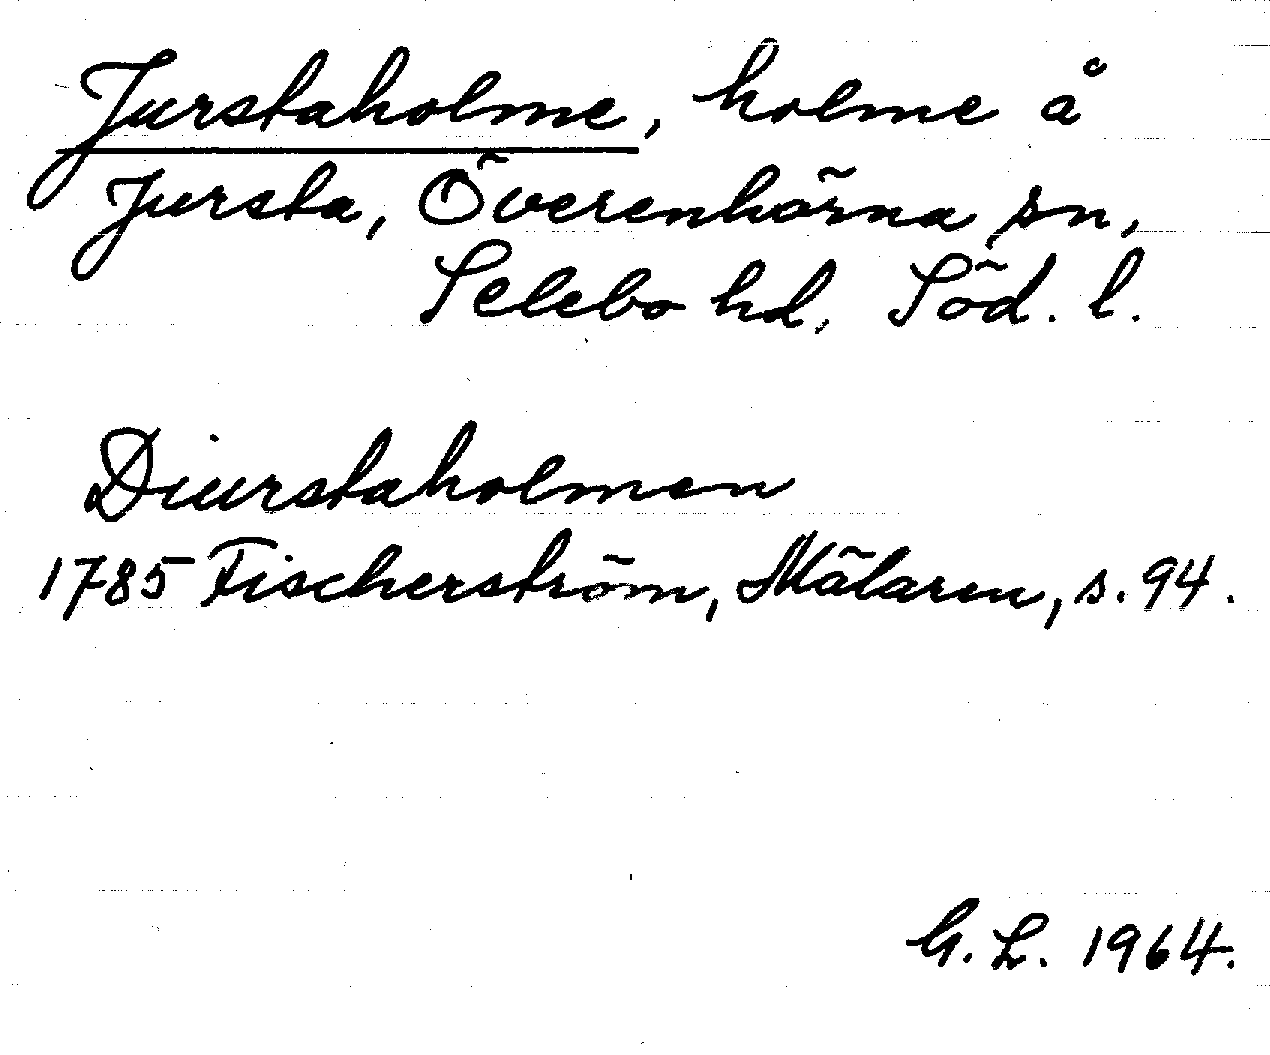 Jurstaholme, holme å
Jursta, Överenhörna sn,
Selebo hd, Söd. l.
Diurstaholmen
1785 Fischerström, Mälaren, s. 94.
G. L. 1964.